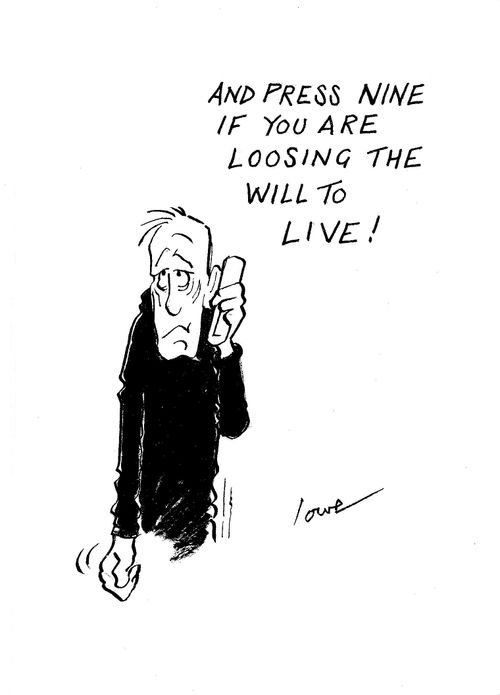 AND PRESS NINE
IF YOU ARE
LOOSING THE
WILL TO
LIVE!
lowe